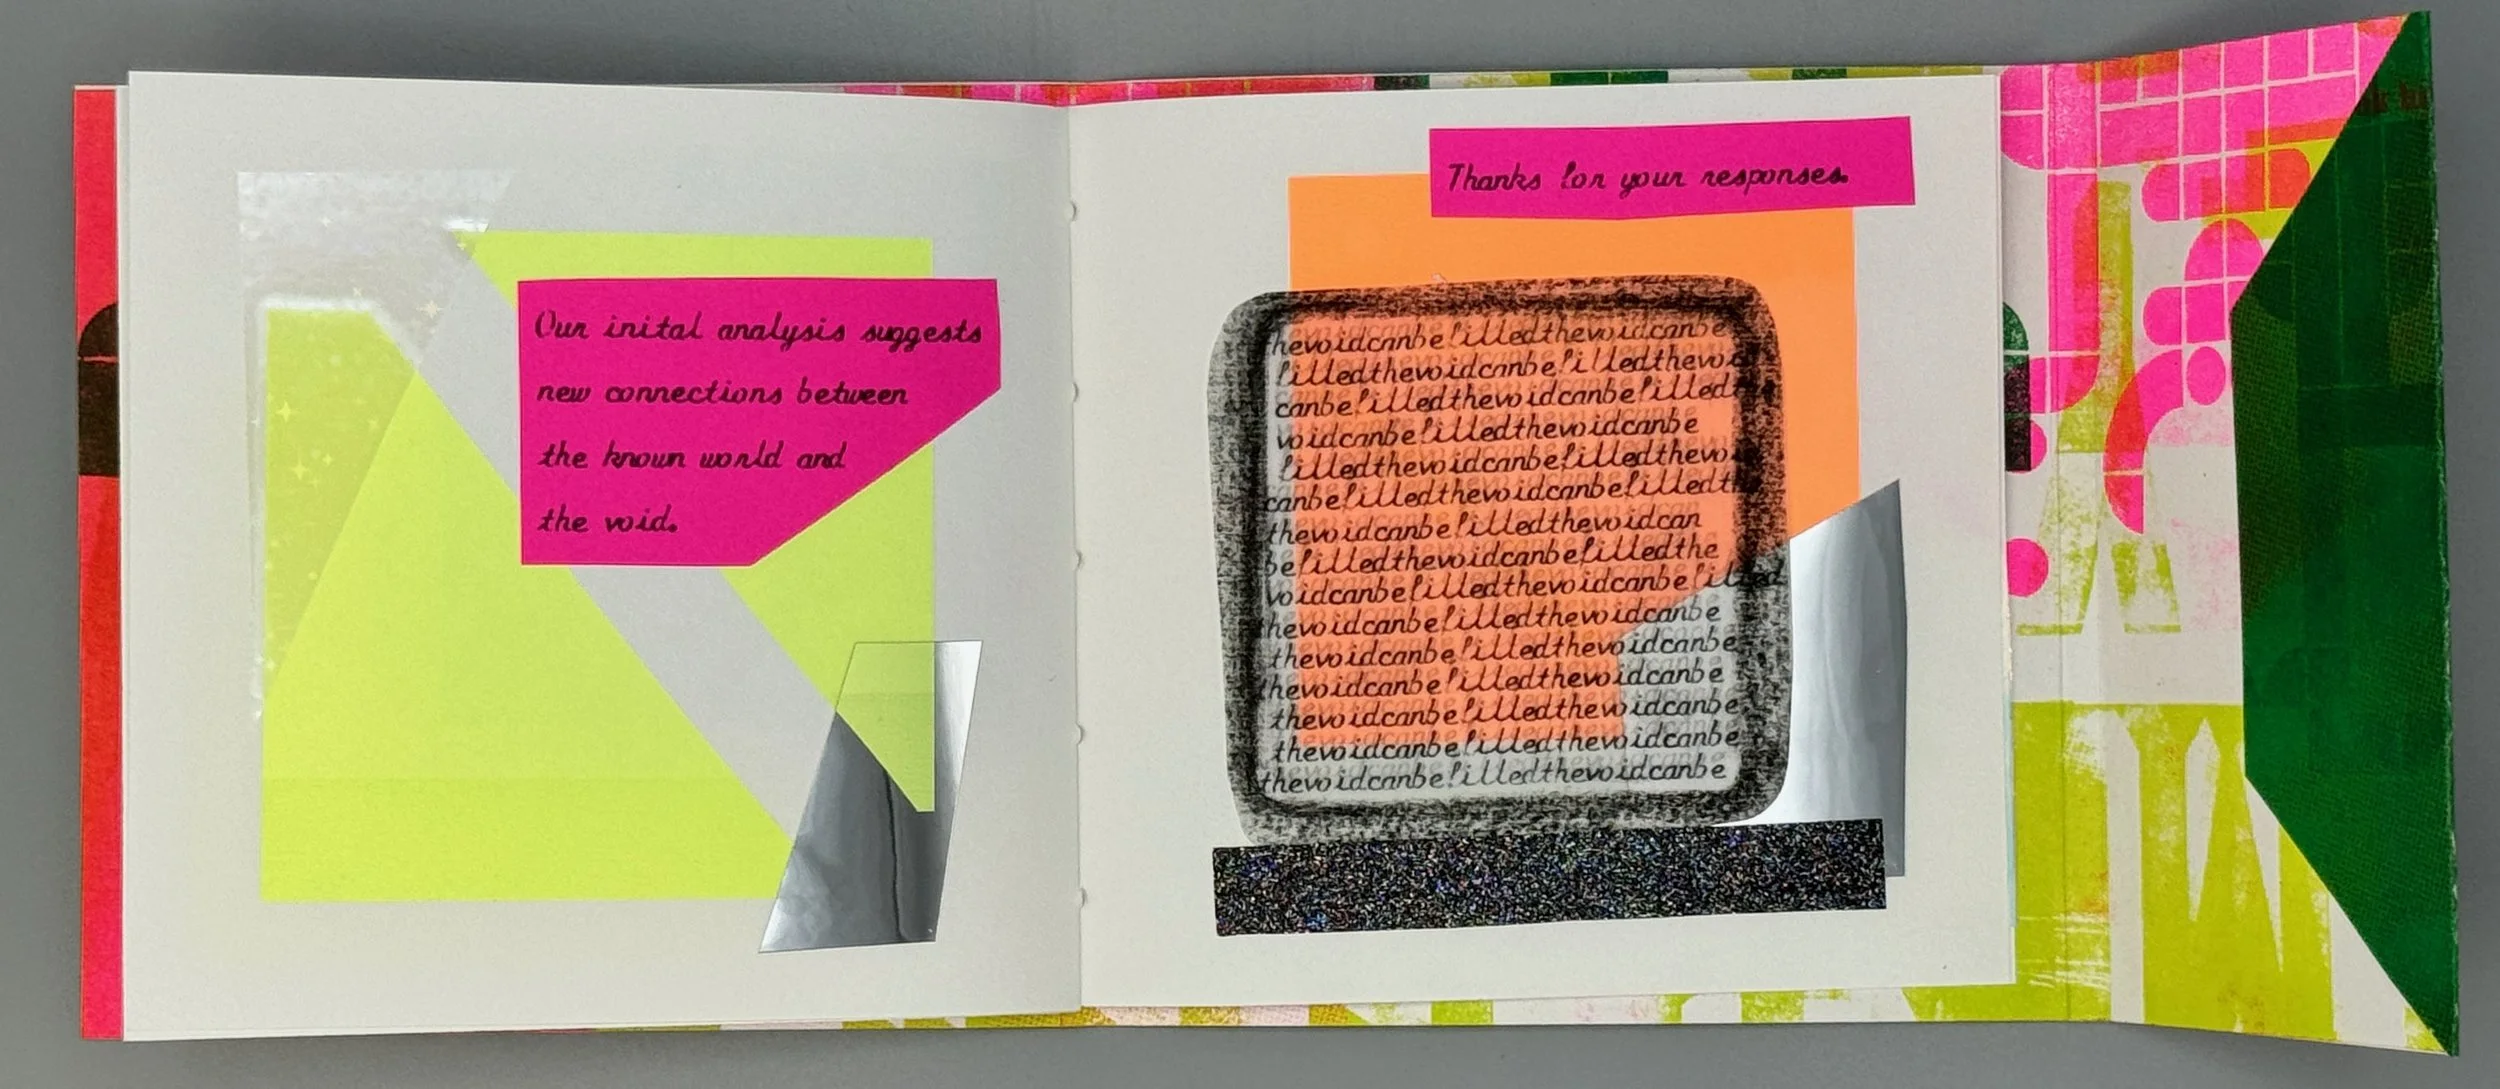 Our inital analysis suggests
new connections between
the known world and
the void.
Thanks for your responses.
hevoidcanbefilledthevoidcanbe
filledthevoidcanbefilledthevoi
canbefilledthevoidcanbefilledthe
voidcanbefilledthevoidcanbe
filledthevoidcanbefilledthevoi
canbefilledthevoidcanbefilledth
thevoidcanbefilledthevoidcan
befilledthevoidcanbefilledthe
voidcanbefilledthevoidcanbefilled
thevoidcanbefilledthevoidcanbe
thevoidcanbefilledthevoidcanbe
thevoidcanbefilledthevoidcanbe
thevoidcanbefilledthevoidcanbe
thevoidcanbefilledthevoidcanbe
thevoidcanbefilledthevoidcanbe